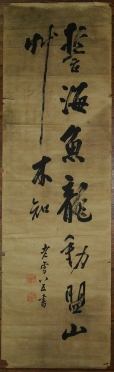 誓海魚龍動盟山
艸木知
老雪八五書